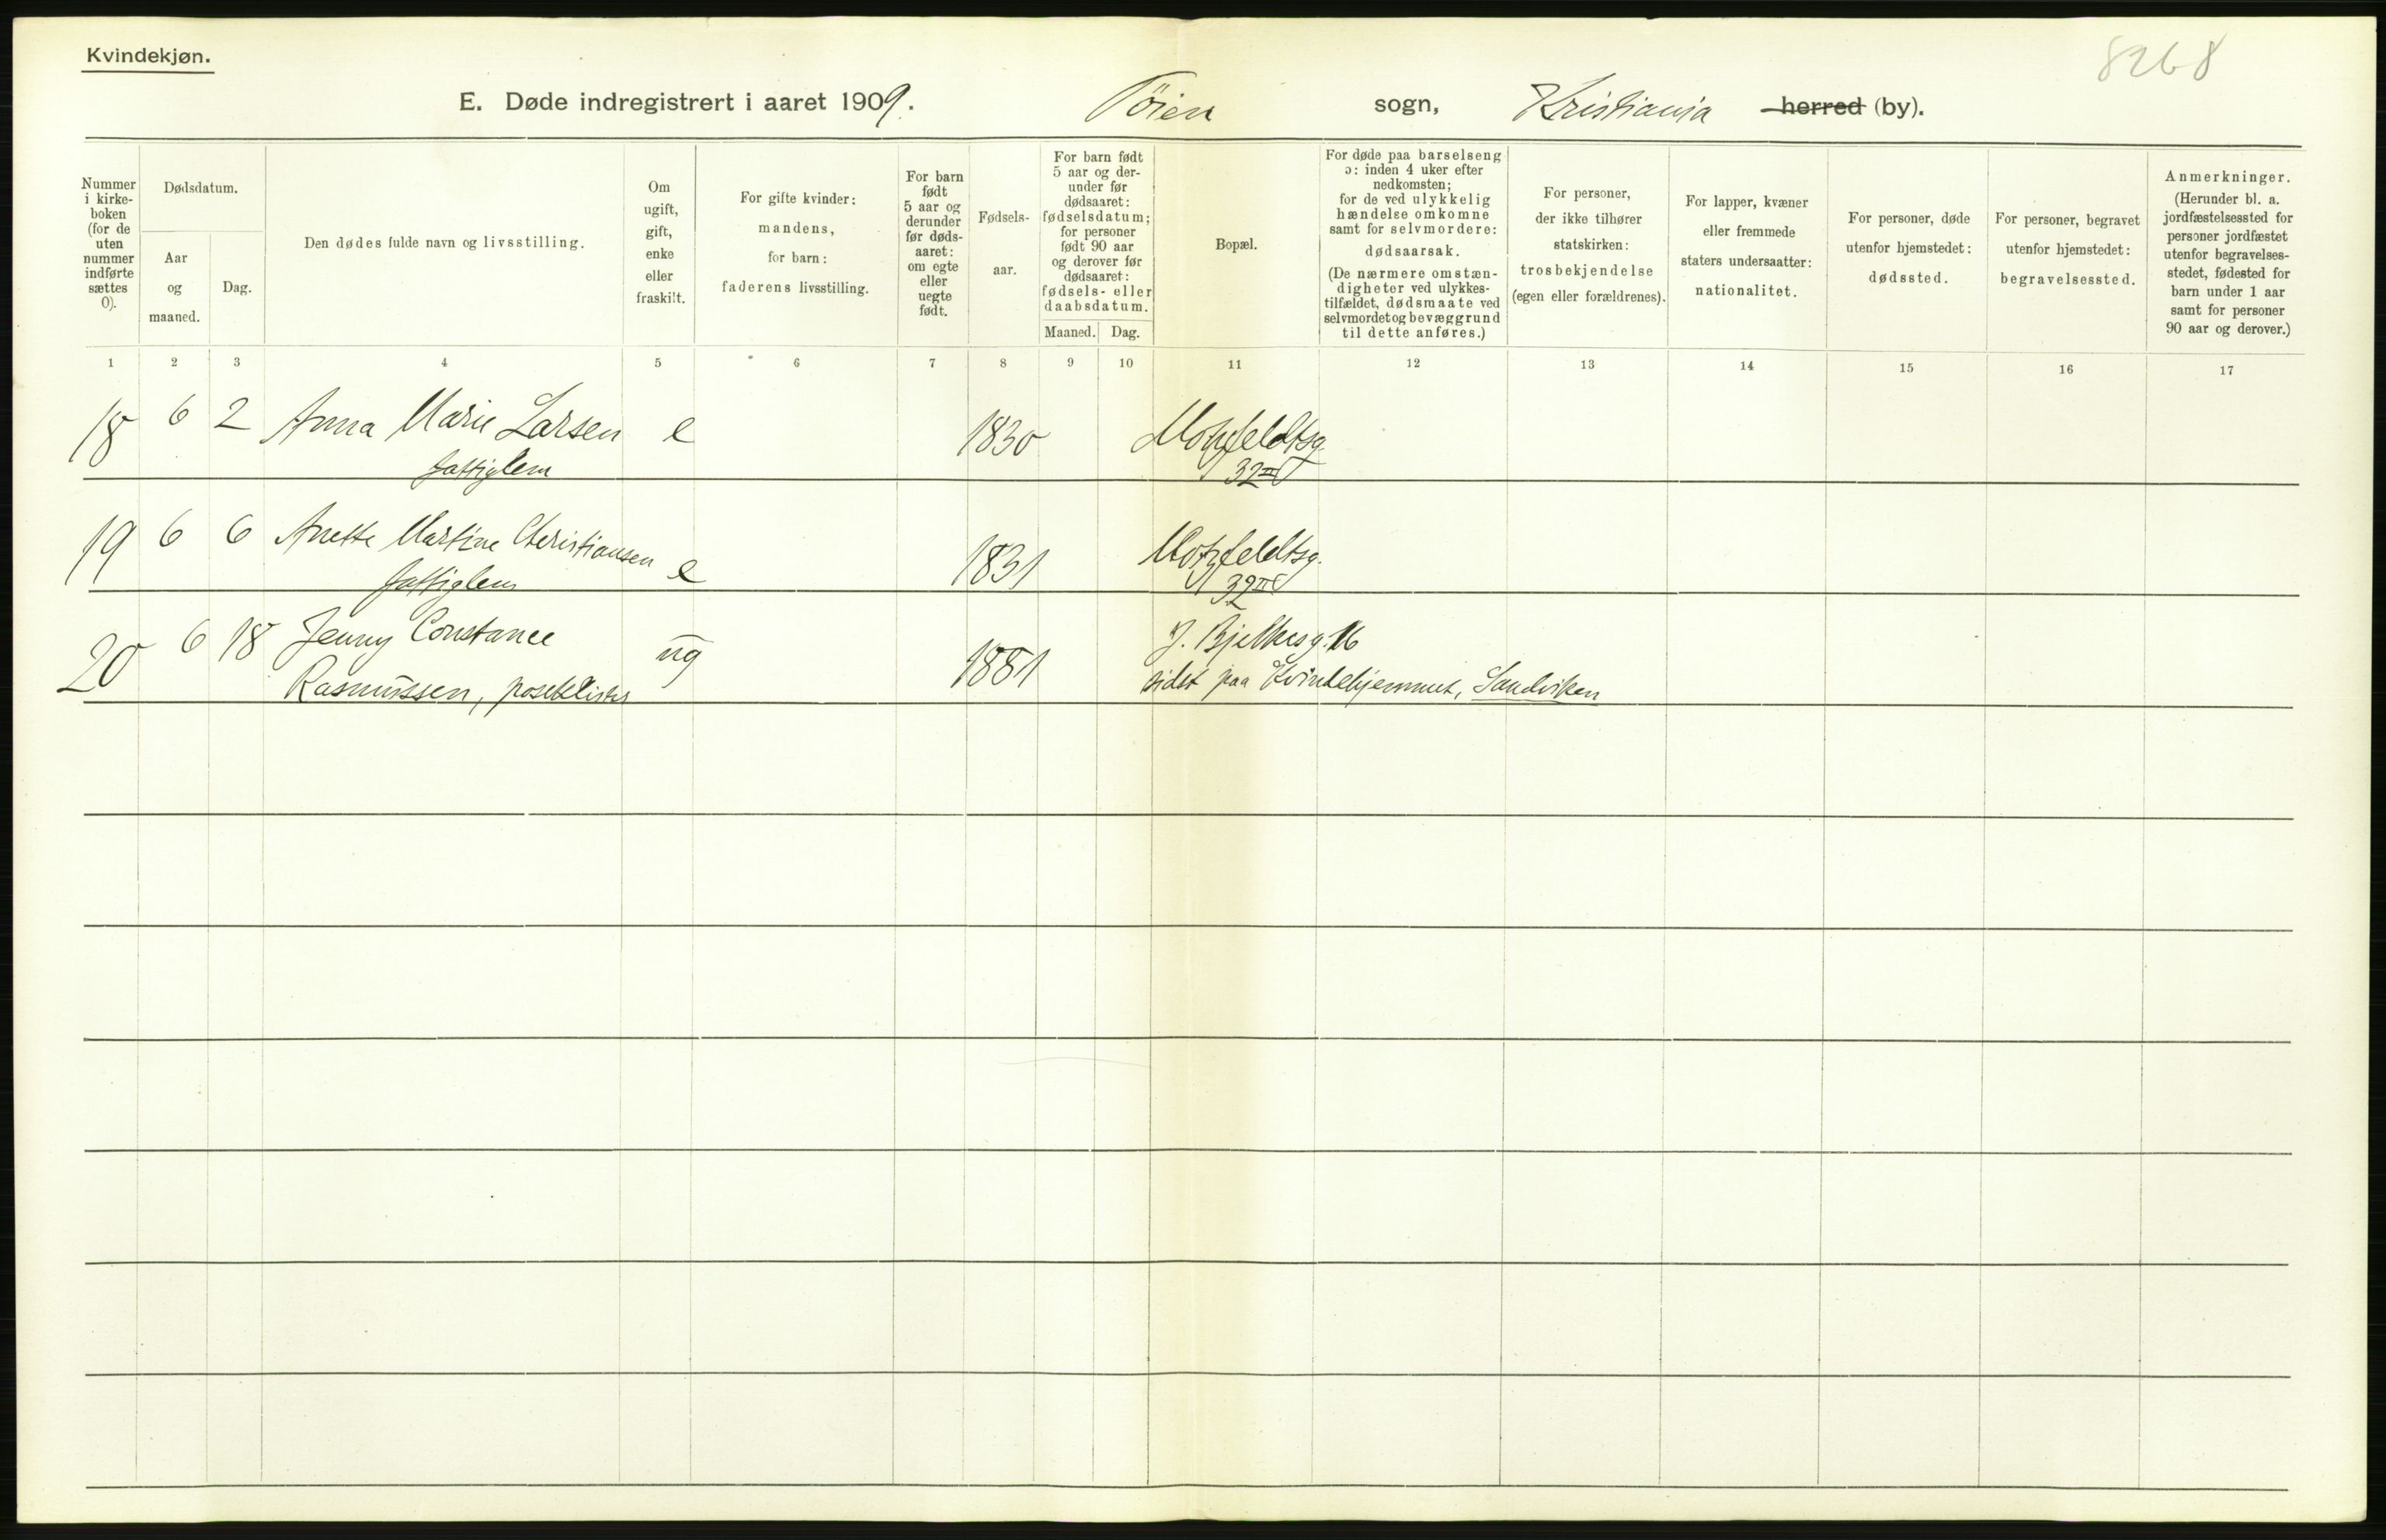 Kvindekjøn.
8268
E. Døde indregistrert i aaret 1909. Töien sogn, Kristiania herred (by).
Nummer i kirke-boken (for de uten nummer indførte sættes 0).
Dødsdatum.
Aar og maaned.
Dag.
Den dødes fulde navn og livsstilling.
Om ugift, gift, enke eller fraskilt.
For gifte kvinder: mandens, for barn: faderens livsstilling.
For barn født 5 aar og derunder før døds-aaret: om egte eller uegte født.
Fødsels-aar.
For barn født 5 aar og der-under før dødsaaret: fødselsdatum; for personer født 90 aar og derover før dødsaaret: fødsels- eller daabsdatum.
Maaned. Dag.
Bopæl.
For døde paa barselseng ɔ: inden 4 uker efter nedkomsten; for de ved ulykkelig hændelse omkomne samt for selvmordere: dødsaarsak. (De nærmere omstæn-digheter ved ulykkes-tilfældet, dødsmaate ved selvmordet og bevæggrund til dette anføres.)
For personer, der ikke tilhører statskirken: trosbekjendelse (egen eller forældrenes).
For lapper, kvæner eller fremmede staters undersaatter: nationalitet.
For personer, døde utenfor hjemstedet: dødssted.
For personer, begravet utenfor hjemstedet: begravelsessted.
Anmerkninger. (Herunder bl. a. jordfæstelsessted for personer jordfæstet utenfor begravelses-stedet, fødested for barn under 1 aar samt for personer 90 aar og derover.)
1 2 3 4 5 6 7 8 9 10 11 12 13 14 15 16 17
18 6 2 Anna Marie Larsen e 1830 Motzfeldtsg.
fattiglem 32 II
19 6 6 Anette Martine Christiansen e 1831 Motzfeldtsg.
fattiglem 32 II
20 6 18 Jenny Constance ug 1881 J. Bjelkesg. 16
Rasmussen, sidst paa Kvindehjemmet, Sandviken